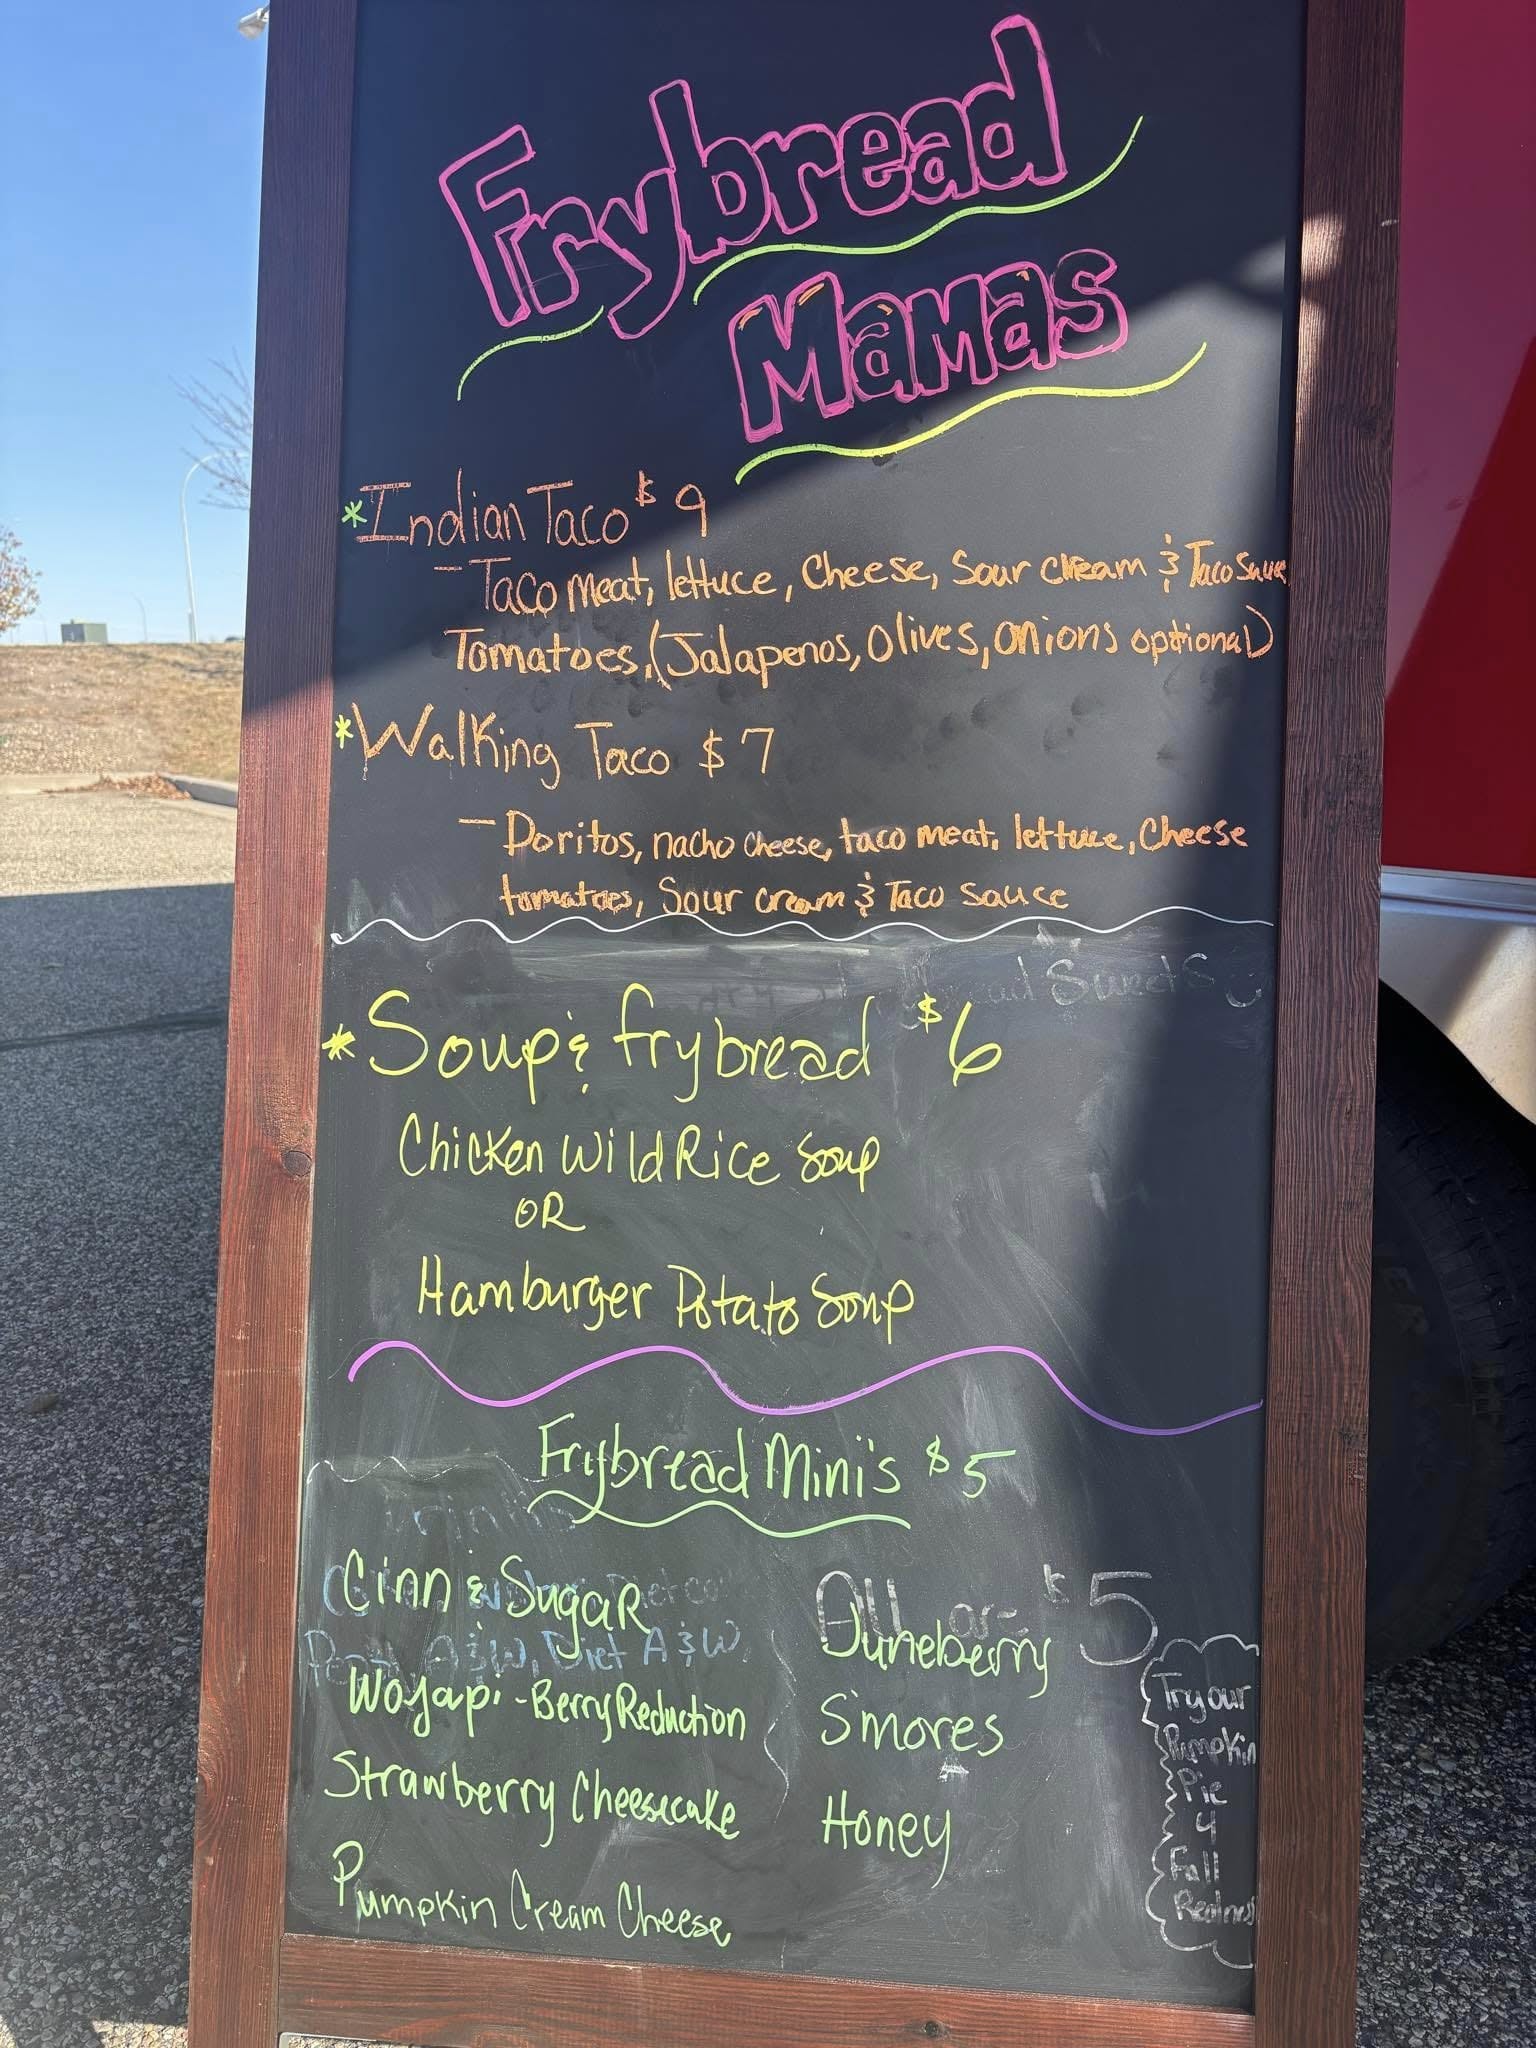 Frybread
Mamas
*Indian Taco $9
- Taco meat, lettuce, Cheese, Sour cream & Taco Sauce
Tomatoes, (Jalapenos, Olives, onions optional)
*Walking Taco $7
- Doritos, nacho cheese, taco meat, lettuce, Cheese
tomatoes, Sour cream & Taco Sauce
Sweets
*Soup & frybread $6
Chicken Wild Rice Soup
OR
Hamburger Potato Soup
Frybread Mini's $5
Cinn & Sugar
Woja​pi - Berry Reduction
Strawberry Cheesecake
Pumpkin Cream Cheese
All are $5
Juneberry
S'mores
Honey
A&W, Diet A&W
Try our
Pumpkin
Pie
4
Fall
Realness